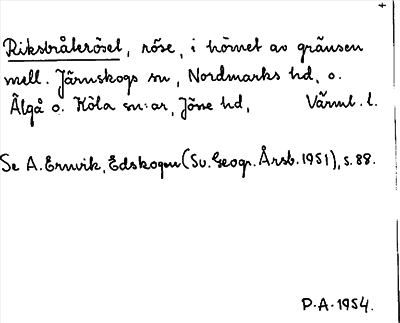 Riksbråteröset, röse, i hörnet av gränsen
mell. Järnskogs sn, Nordmarks hd, o.
Älgå o. Köla sn:ar, Jöse hd, Värml. l.
Se A. Ernvik, Edskogen (Sv. Geogr. Årsb. 1951), s. 88.
P.A. 1954.